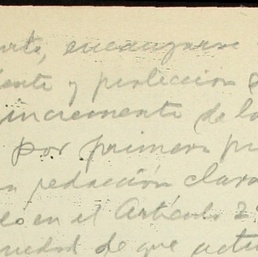 arte, encauzarse
iente y protección
incremento de la
por primera
redacción clara
do en el Artículo 29
de que actu